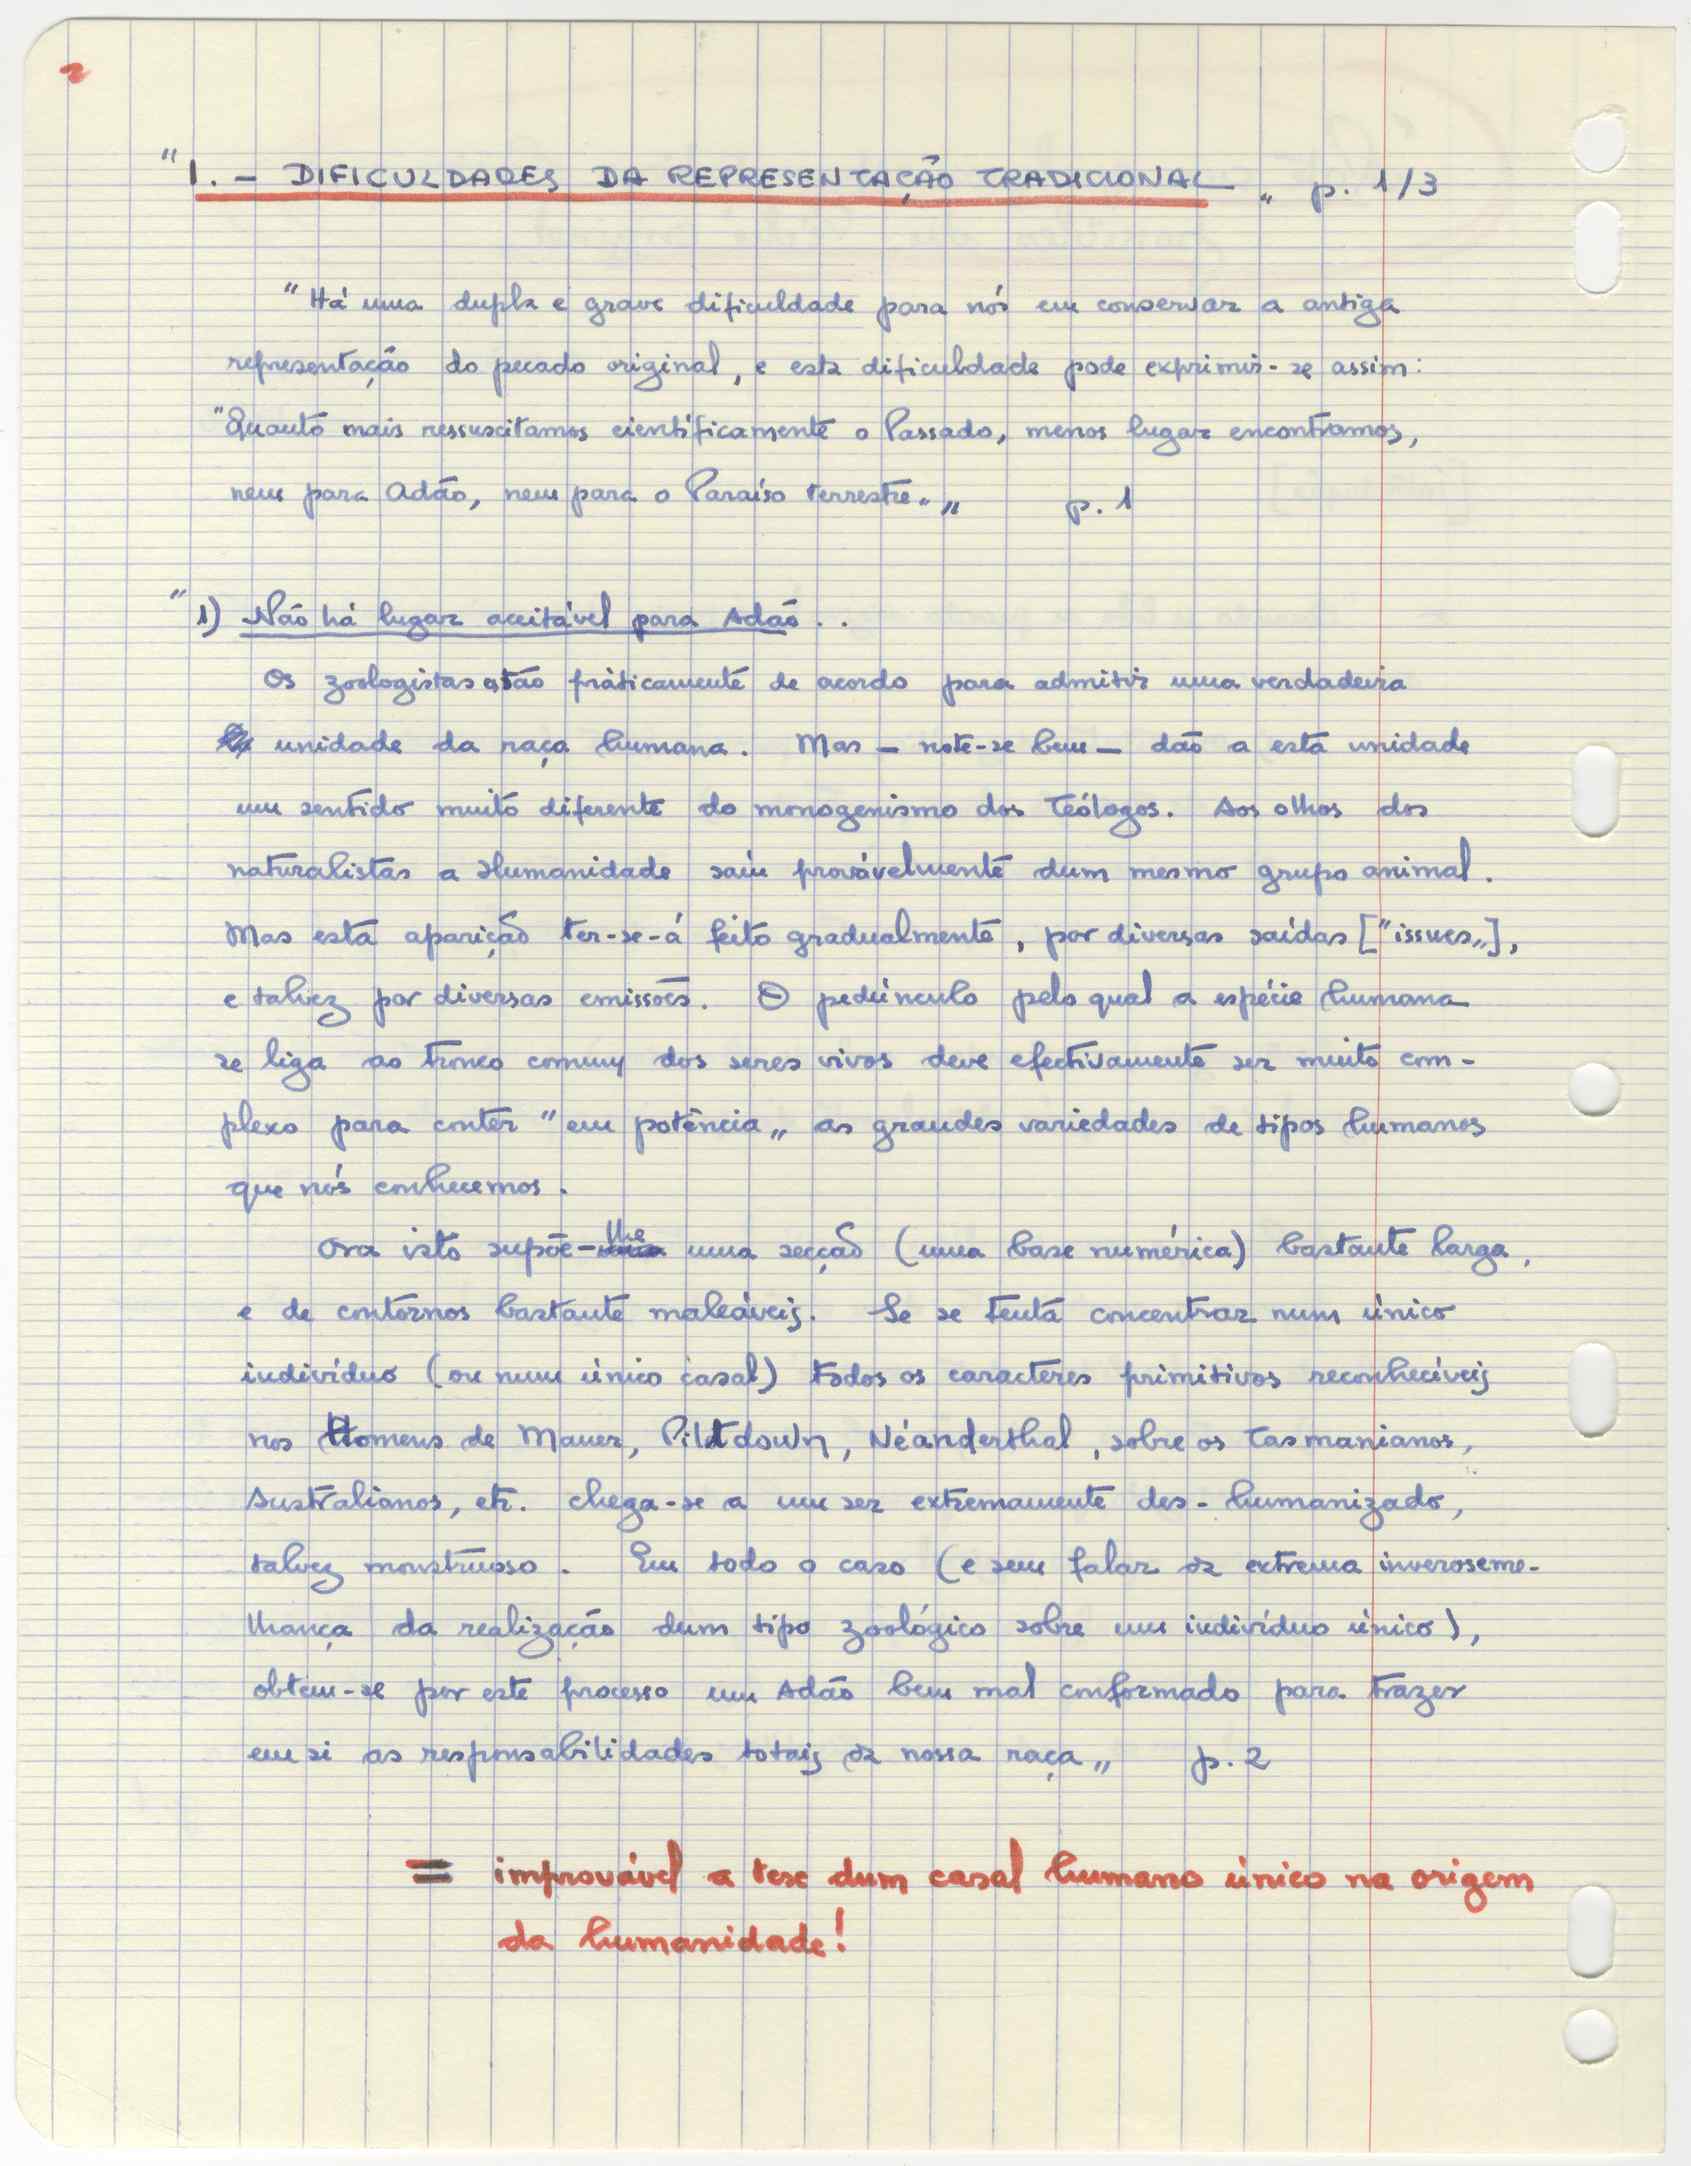 2
"1. - DIFICULDADES DA REPRESENTAÇÃO TRADICIONAL „ p. 1/3
"Há uma dupla e grave dificuldade para nós em conservar a antiga
representação do pecado original, e esta dificuldade pode exprimir-se assim:
"Quanto mais ressuscitamos cientificamente o Passado, menos lugar encontramos,
nem para Adão, nem para o Paraíso terrestre„„ p. 1
"1) Não há lugar aceitável para Adão..
Os zoologistas estão pràticamente de acordo para admitir uma verdadeira
unidade da raça humana. Mas - note-se bem - dão a esta unidade
um sentido muito diferente do monogenismo dos Teólogos. Aos olhos dos
naturalistas a Humanidade saíu provàvelmente dum mesmo grupo animal.
Mas esta aparição ter-se-á feito gradualmente, por diversas saídas ["issues„],
e talvez por diversas emissões. O pedúnculo pelo qual a espécie humana
se liga ao tronco comum dos seres vivos deve efectivamente ser muito com-
plexo para conter "em potência„ as grandes variedades de tipos humanos
que nós conhecemos.
Ora isto supõe-lhe uma secção (uma base numérica) bastante larga,
e de contornos bastante maleáveis. Se se tenta concentrar num único
indivíduo (ou num único casal) todos os caracteres primitivos reconhecíveis
nos Homens de Mauer, Piltdown, Néanderthal, sobre os Tasmanianos,
Australianos, etc. chega-se a um ser extremamente des-humanizado,
talvez monstruoso. Em todo o caso (e sem falar da extrema inveroseme-
lhança da realização dum tipo zoológico sobre um indivíduo único),
obtem-se por este processo um Adão bem mal conformado para trazer
em si as responsabilidades totais da nossa raça„ p. 2
= improvável a tese dum casal humano único na origem
da humanidade!